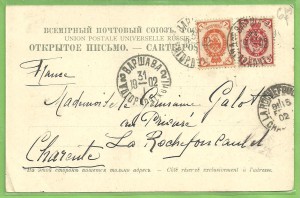 ВСЕМІРНЫЙ ПОЧТОВЫЙ СОЮЗЪ.
UNION POSTALE UNIVERSELLE RUSSIE
ОТКРЫТОЕ ПИСЬМО. — CARTE
France
ВАРШАВА
31
10
02
Mademoiselle Germaine Galot
au Prieuré
La Rochefoucauld
Charente
LA ROCHEFOUCAULD
15
02
На этой сторонѣ пишется только адресъ. — Côté réservé exclusivement à l'adresse.